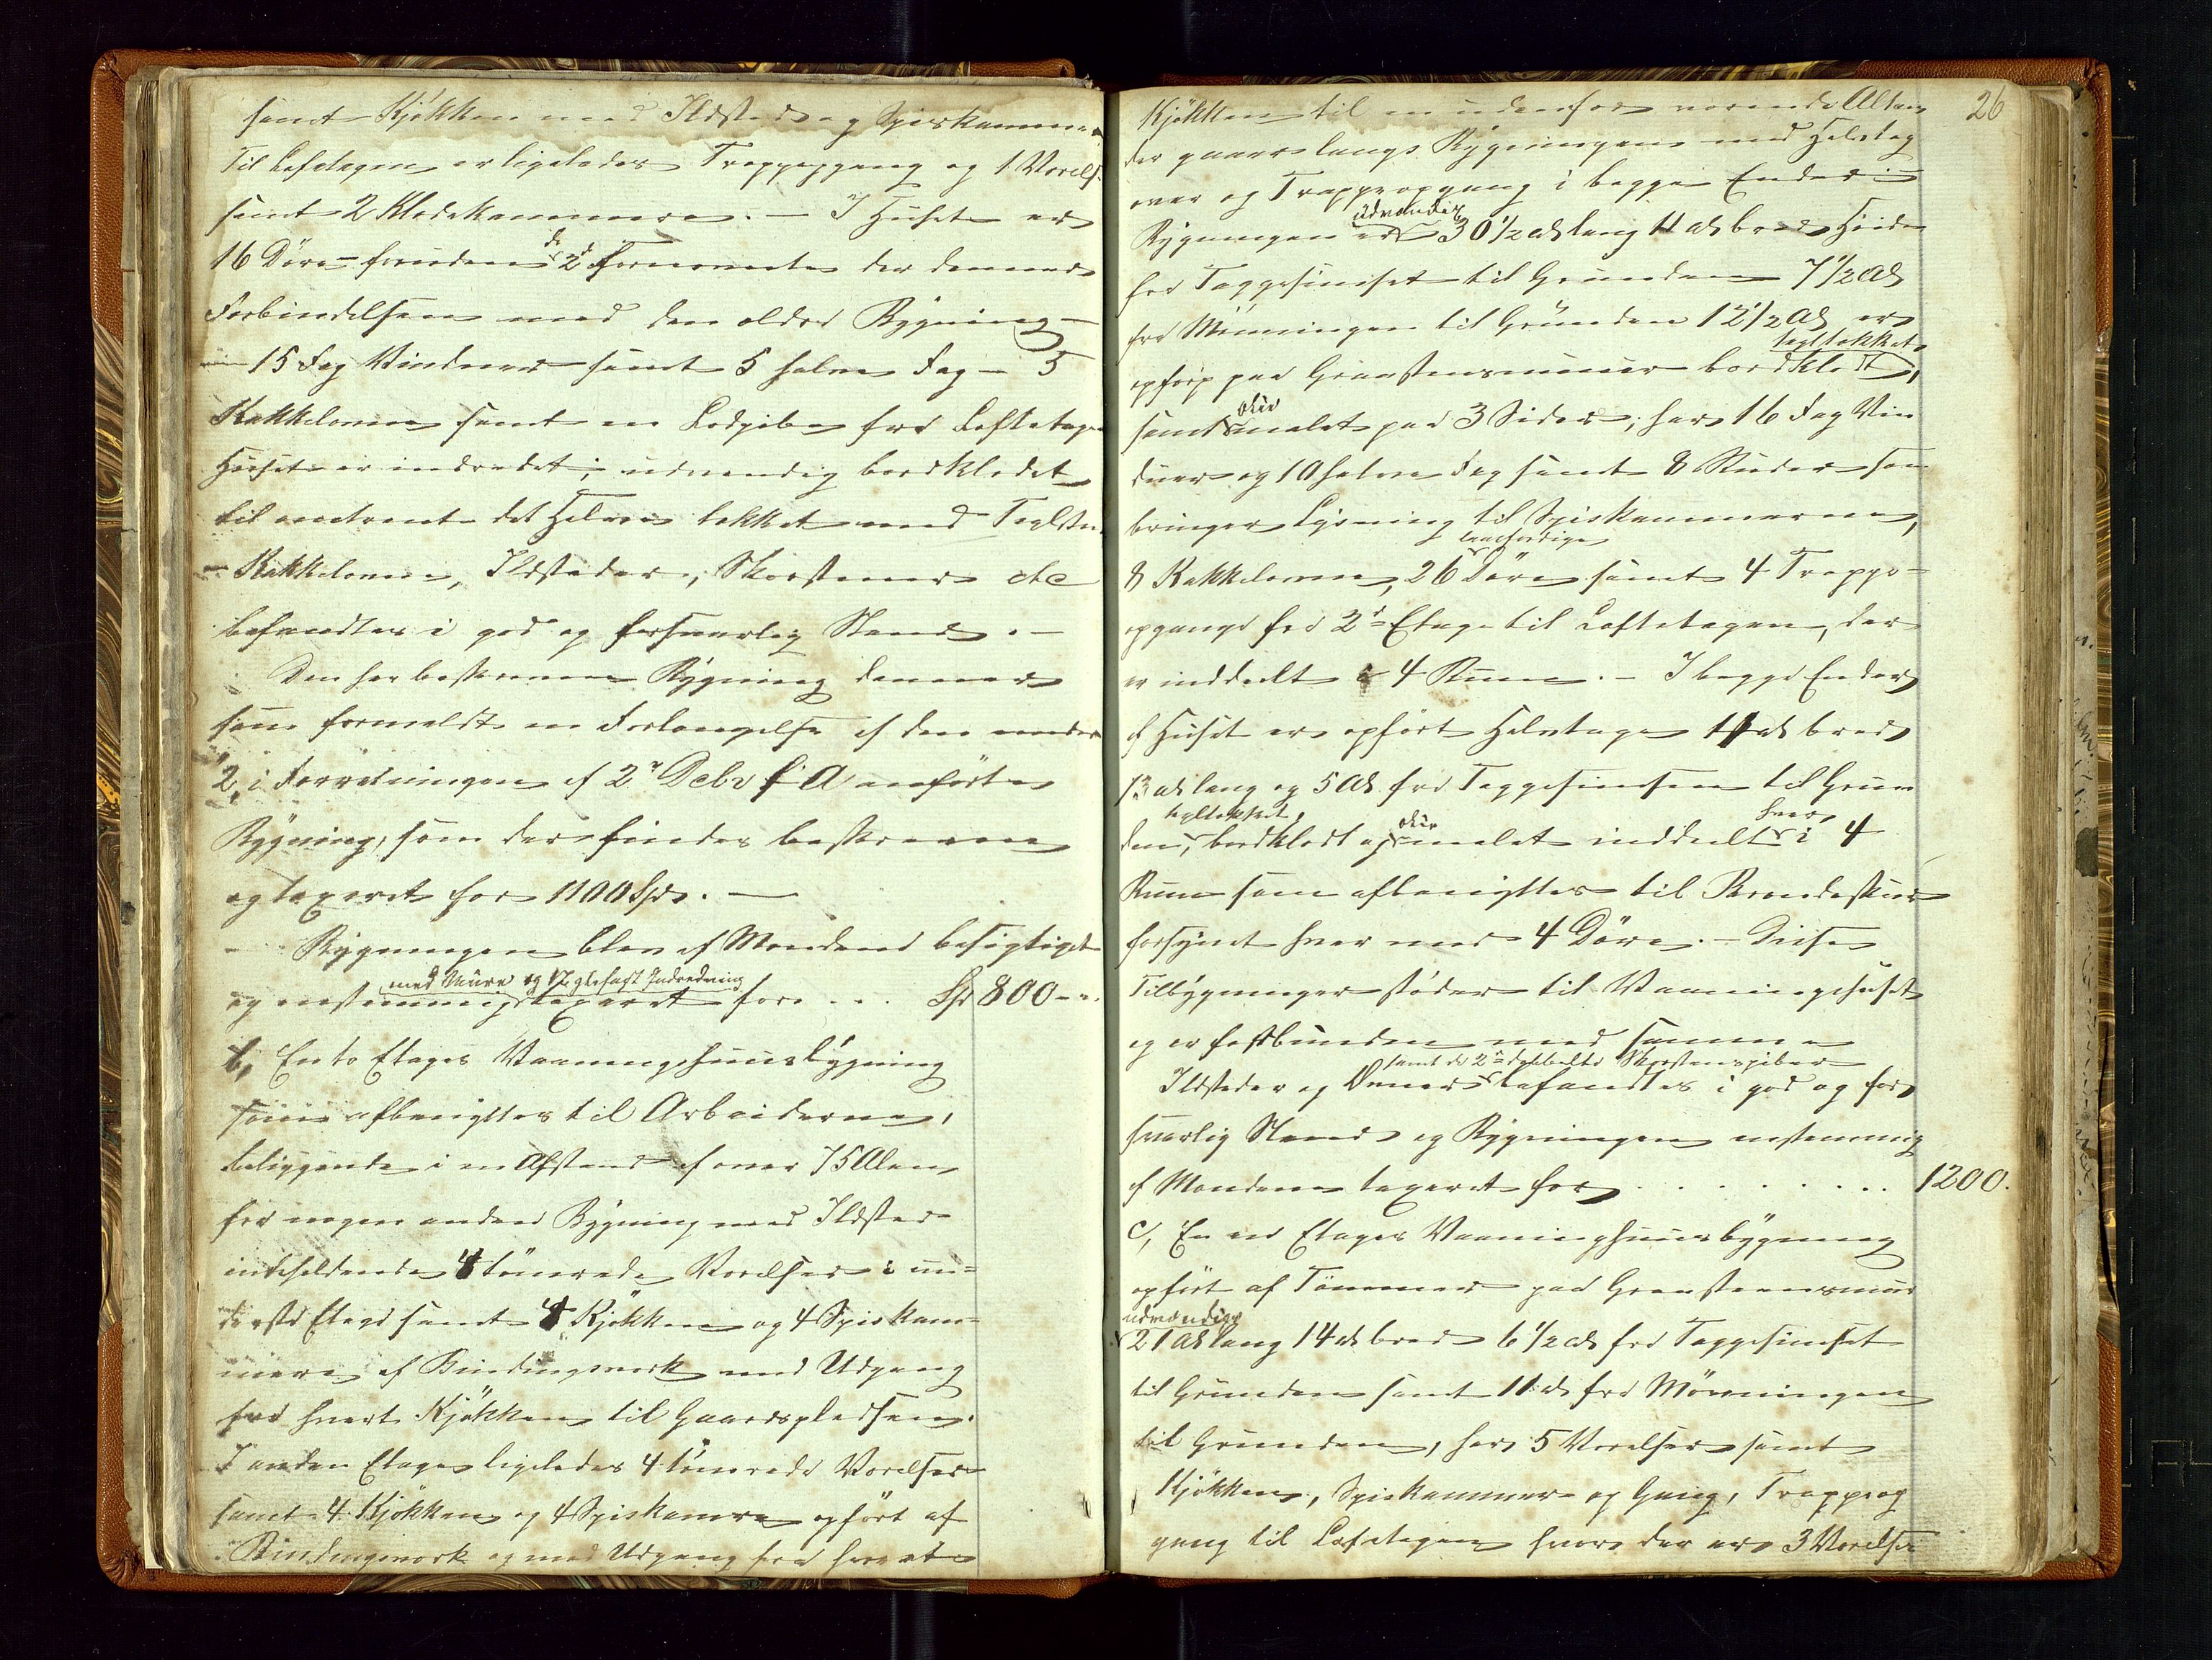 samt Kjökken med Ildsted og Spiskammer.
Til Loftetagen er ligeledes Trappegang og 1 Værelse
samt 2 Klædekammere. — I Huset er
16 Döre — foruden de 2de Fornævnte der danner
Forbindelsen med den ældre Bygning —
15 Fag Vinduer samt 5 halve Fag — 5
Kakkelovne samt en Lodpibe fra Loftetagen
Huset er indredet, udvendig bordklædt
til omtrent det Halve, tækket med Teglsten.
— Kakkelovne, Ildsteder, Skorstener etc
befandtes i god og forsvarlig Stand. —
Den her beskrevne Bygning danner
som formeldt en Forlængelse af den under
2, i Forretningen af 2n Debr f. A. anførte
Bygning, som der findes beskreven
og taxeret for 1100 Spd. —
Bygningen blev af Mændene besigtiget
med Mure og Veglefast Indredning
og enstemmig taxeret for . . . Spd 800 - -.
b, En to Etages Vaaningshuusbygning
som afbenyttes til Arbeiderne,
beliggende i en Afstand af over 75 Alen
fra nogen anden Bygning med Ildsted
indeholdende 4 tömrede Værelser i un=
derste Etage samt 4 Kjökken og 4 Spiskam=
mere af Bindingsværk med Udgang
fra hvert Kjökken til Gaardspladsen.
I anden Etage ligeledes 4 tömrede Værelser
samt 4 Kjökken og 4 Spiskamre opfört af
Bindingsværk og med Udgang fra hvert
26
Kjökken til en udenfor værende Altan
der gaaer langs Bygningen med Halvtag
over og Trappeopgang i begge Ender —
udvendig
Bygningen er 30 1/2 al lang 11 al bred Höide
fra Taggesimset til Grunden 7 1/2 Al
fra Mönningen til Grunden 12 1/2 Al er
tegltækket
opført paa Graastensmuur bordklædt,
samt oliemalet paa 3 Sider; har 16 Fag Vin
duer og 10 halve Fag samt 8 Ruder som
bringer Lysning til Spiskammerne,
8 Kakkelovne, 26 Döre samt 4 Trappe=
opgange fra 2d Etage til Loftetagen, der
er inddeelt i 4 Rum. — I begge Ender
af Huset er opfört Halvtage 11 al bred
13 al lang og 5 Al fra Taggesimsen til Grun
tegltækket, olie hver
den, bordklædt og malet inddeelt i 4
Rum som afbenyttes til Brændeskur
forsynet hver med 4 Döre. — Disse
Tilbygninger støder til Vaaningshuset
og er fastbunden med samme
samt de 2de dobbelte Skorstenspiber
Ildsteder og Ovner befandtes i god og for
svarlig Stand og Bygningen enstemmig
af Mændene taxeret for . . . . . . . . . 1200.
c, En een Etages Vaaninghuusbygning
opfört af Tömmer paa Graasteensmuur
udvendig
21 Al lang 14 al bred 6 1/2 al fra Taggesimset
til Grunden samt 11 al fra Mönningen
til Grunden, har 5 Værelser samt
Kjökken, Spiskammer og Gang, Trappeop
gang til Loftetagen hvor der er 3 Værelser